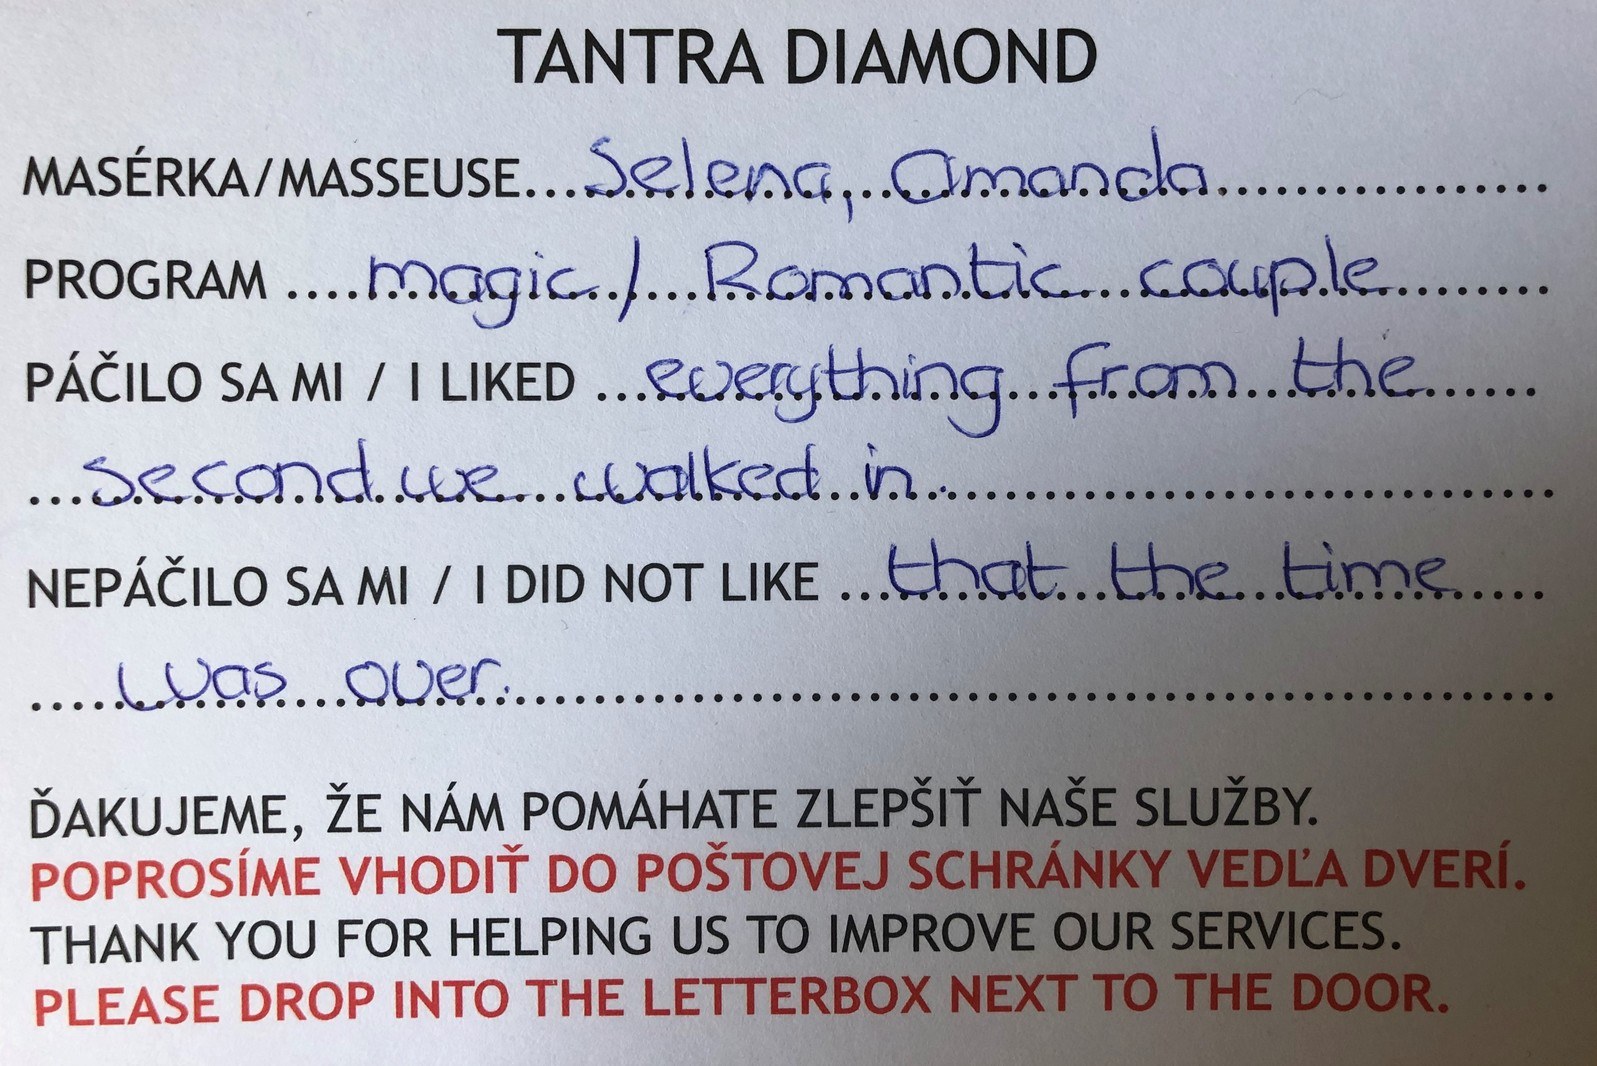 TANTRA DIAMOND
MASÉRKA/MASSEUSE...Selena, Amanda
PROGRAM ....magic / Romantic couple
PÁČILO SA MI / I LIKED ...everything from the
...second we walked in.
NEPÁČILO SA MI / I DID NOT LIKE ...that the time
.....was over.
ĎAKUJEME, ŽE NÁM POMÁHATE ZLEPŠIŤ NAŠE SLUŽBY.
POPROSÍME VHODIŤ DO POŠTOVEJ SCHRÁNKY VEDĽA DVERÍ.
THANK YOU FOR HELPING US TO IMPROVE OUR SERVICES.
PLEASE DROP INTO THE LETTERBOX NEXT TO THE DOOR.